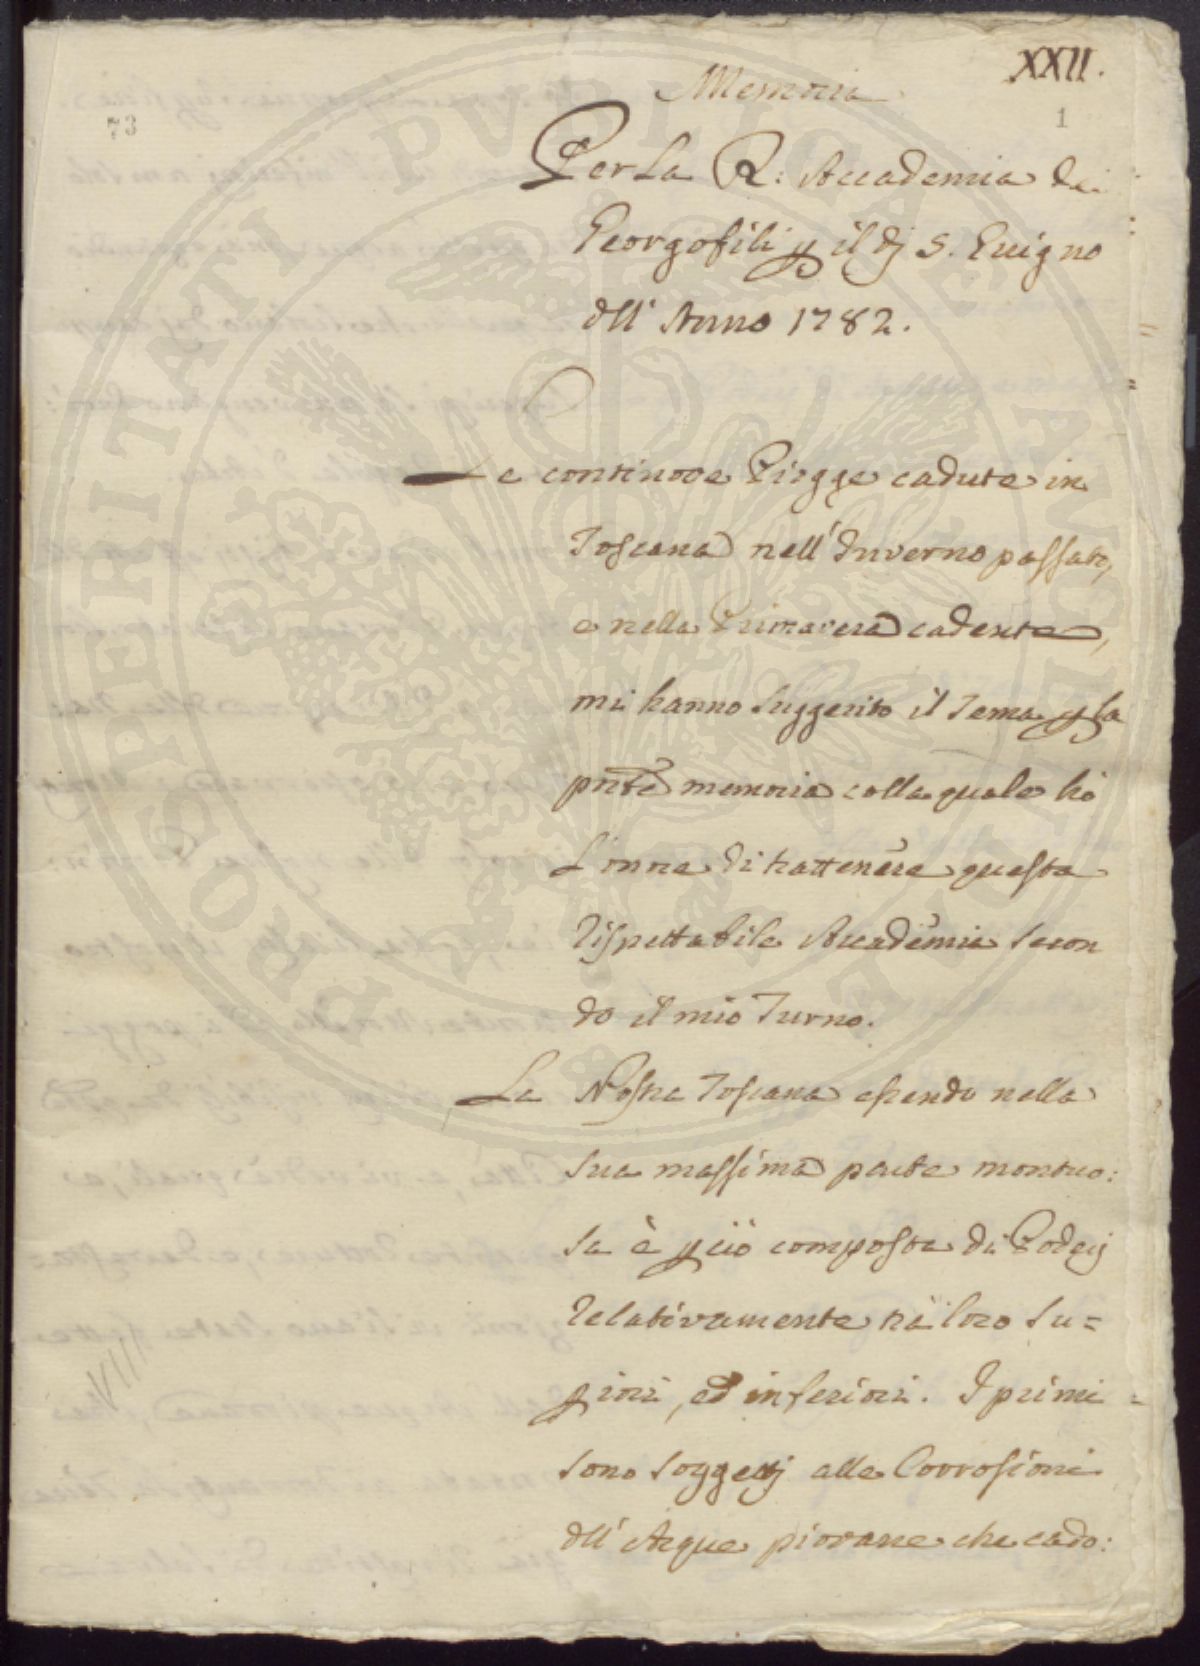 XXII.
Memoria
73
1
Per La R: Accademia dei
Georgofili p il dj 5. Giugno
dll' Anno 1782.
Le continove Piogge cadute in
Toscana nell' Inverno passato,
e nella Primavera cadente,
mi hanno suggerito il Tema p la
pnte memoria colla quale hò
l'onore di trattenere questa
rispettabile Accademia secon
do il mio Turno.
La Nostra Toscana essendo nella
sua massima parte montuo:
sa è p ciò composta di Poderj
relativamente trà loro su=
piori, ed inferiori. I primi
sono soggettj alle Corrosioni
dll' Acque piovane che cado:
VIII
PROSPERITATI PVBLICAE AVGENDAE